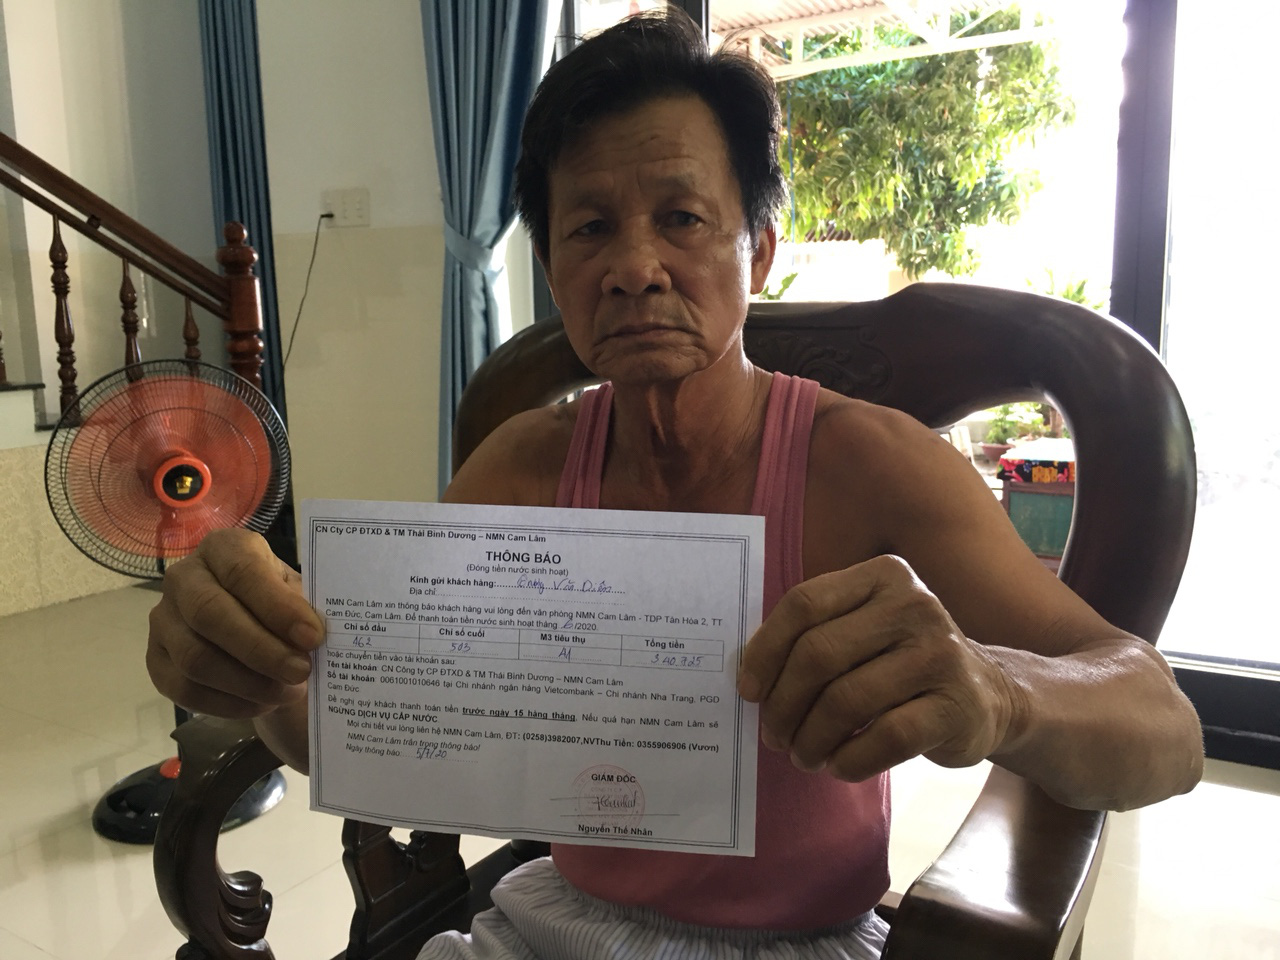 CN Cty CP ĐTXD & TM Thái Bình Dương – NMN Cam Lâm
THÔNG BÁO
(Đóng tiền nước sinh hoạt)
Kính gửi khách hàng:........ Văn ........
Địa chỉ:
NMN Cam Lâm xin thông báo khách hàng vui lòng đến văn phòng NMN Cam Lâm - TDP Tân Hòa 2, TT
Cam Đức, Cam Lâm. Để thanh toán tiền nước sinh hoạt tháng 6/2020.
Chỉ số đầu Chỉ số cuối M3 tiêu thụ Tổng tiền
462 503 41 340.725
hoặc chuyển tiền vào tài khoản sau:
Tên tài khoản: CN Công ty CP ĐTXD & TM Thái Bình Dương – NMN Cam Lâm
Số tài khoản: 0061001010646 tại Chi nhánh ngân hàng Vietcombank – Chi nhánh Nha Trang, PGD
Cam Đức
Đề nghị quý khách thanh toán tiền trước ngày 15 hàng tháng. Nếu quá hạn NMN Cam Lâm sẽ
NGỪNG DỊCH VỤ CẤP NƯỚC
Mọi chi tiết vui lòng liên hệ NMN Cam Lâm, ĐT: (0258)3982007,NVThu Tiền: 0355906906 (Vươn)
NMN Cam Lâm trân trọng thông báo!
Ngày thông báo: 5/7/20
GIÁM ĐỐC
Nguyễn Thế Nhân